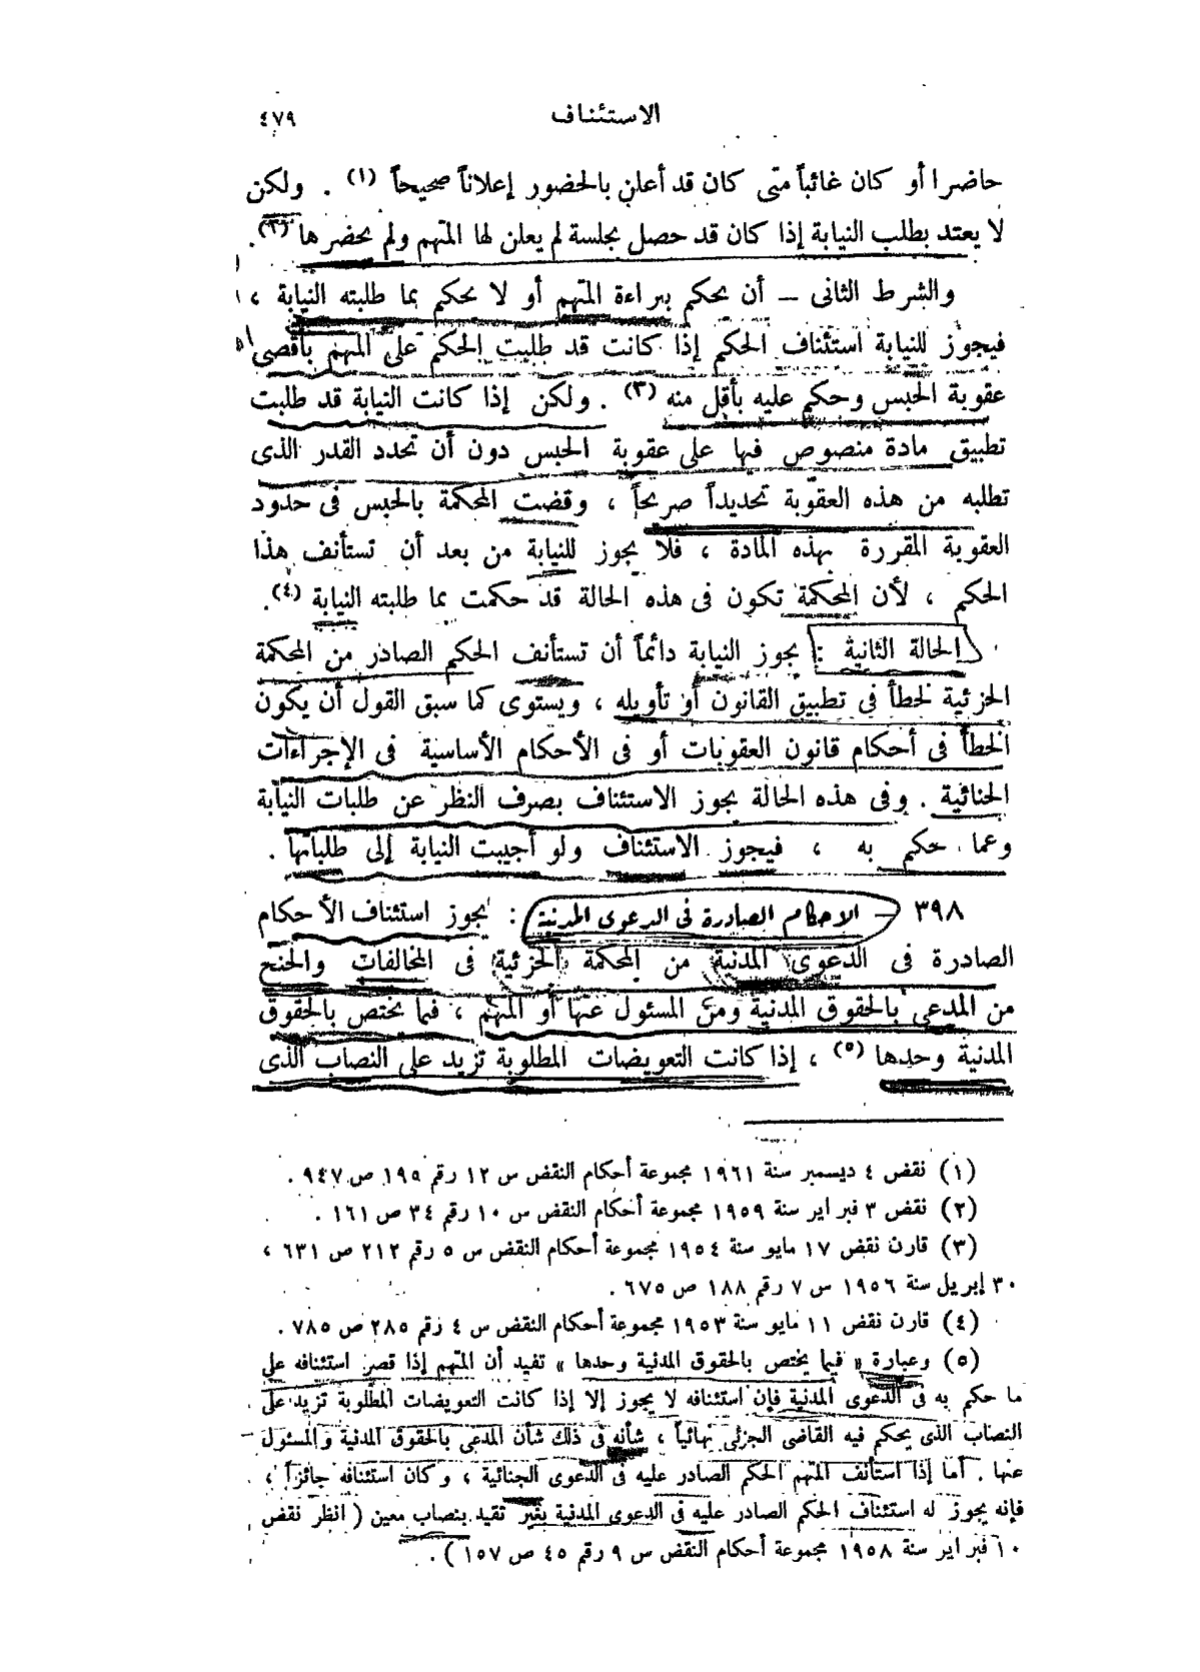 الاستئناف
٤٧٩
حاضرا أو كان غائباً متى كان قد أعلن بالحضور إعلاناً صحيحاً (١) . ولكن
لا يعتد بطلب النيابة إذا كان قد حصل بجلسة لم يعلن لها المتهم ولم يحضرها (٢) .
والشرط الثانى – أن يحكم ببراءة المتهم أو لا يحكم بما طلبته النيابة ،
فيجوز للنيابة استئناف الحكم إذا كانت قد طلبت الحكم على المتهم بأقصى
عقوبة الحبس وحكم عليه بأقل منه (٣) . ولكن إذا كانت النيابة قد طلبت
تطبيق مادة منصوص فيها على عقوبة الحبس دون أن تحدد القدر الذى
تطلبه من هذه العقوبة تحديداً صريحاً ، وقضت المحكمة بالحبس فى حدود
العقوبة المقررة بهذه المادة ، فلا يجوز للنيابة من بعد أن تستأنف هذا
الحكم ، لأن المحكمة تكون فى هذه الحالة قد حكمت بما طلبته النيابة (٤) .
الحالة الثانية : يجوز النيابة دائماً أن تستأنف الحكم الصادر من المحكمة
الجزئية لخطأ فى تطبيق القانون أو تأويله ، ويستوى كما سبق القول أن يكون
الخطأ فى أحكام قانون العقوبات أو فى الأحكام الأساسية فى الإجراءات
الجنائية . وفى هذه الحالة يجوز الاستئناف بصرف النظر عن طلبات النيابة
وعما حكم به ، فيجوز الاستئناف ولو أجيبت النيابة إلى طلباتها .
٣٩٨ – الاحكام الصادرة فى الدعوى المدنية : يجوز استئناف الأحكام
الصادرة فى الدعوى المدنية من المحكمة الجزئية فى المخالفات والجنح
من المدعى بالحقوق المدنية ومن المسئول عنها أو المتهم ، فيما يختص بالحقوق
المدنية وحدها (٥) ، إذا كانت التعويضات المطلوبة تزيد على النصاب الذى
(١) نقض ٤ ديسمبر سنة ١٩٦١ مجموعة أحكام النقض س ١٢ رقم ١٩٥ ص ٩٤٧ .
(٢) نقض ٣ فبراير سنة ١٩٥٩ مجموعة أحكام النقض س ١٠ رقم ٣٤ ص ١٦١ .
(٣) قارن نقض ١٧ مايو سنة ١٩٥٤ مجموعة أحكام النقض س ٥ رقم ٢١٢ ص ٦٣١ ،
٣٠ إبريل سنة ١٩٥٦ س ٧ رقم ١٨٨ ص ٦٧٥ .
(٤) قارن نقض ١١ مايو سنة ١٩٥٣ مجموعة أحكام النقض س ٤ رقم ٢٨٥ ص ٧٨٥ .
(٥) وعبارة « فيما يختص بالحقوق المدنية وحدها » تفيد أن المتهم إذا قصر استئنافه على
ما حكم به فى الدعوى المدنية فإن استئنافه لا يجوز إلا إذا كانت التعويضات المطلوبة تزيد على
النصاب الذى يحكم فيه القاضى الجزئى نهائياً ، شأنه فى ذلك شأن المدعى بالحقوق المدنية والمسئول
عنها . أما إذا استأنف المتهم الحكم الصادر عليه فى الدعوى الجنائية ، وكان استئنافه جائزاً ،
فإنه يجوز له استئناف الحكم الصادر عليه فى الدعوى المدنية بغير تقيد بنصاب معين ( انظر نقض
١٠ فبراير سنة ١٩٥٨ مجموعة أحكام النقض س ٩ رقم ٤٥ ص ١٥٧ ) .